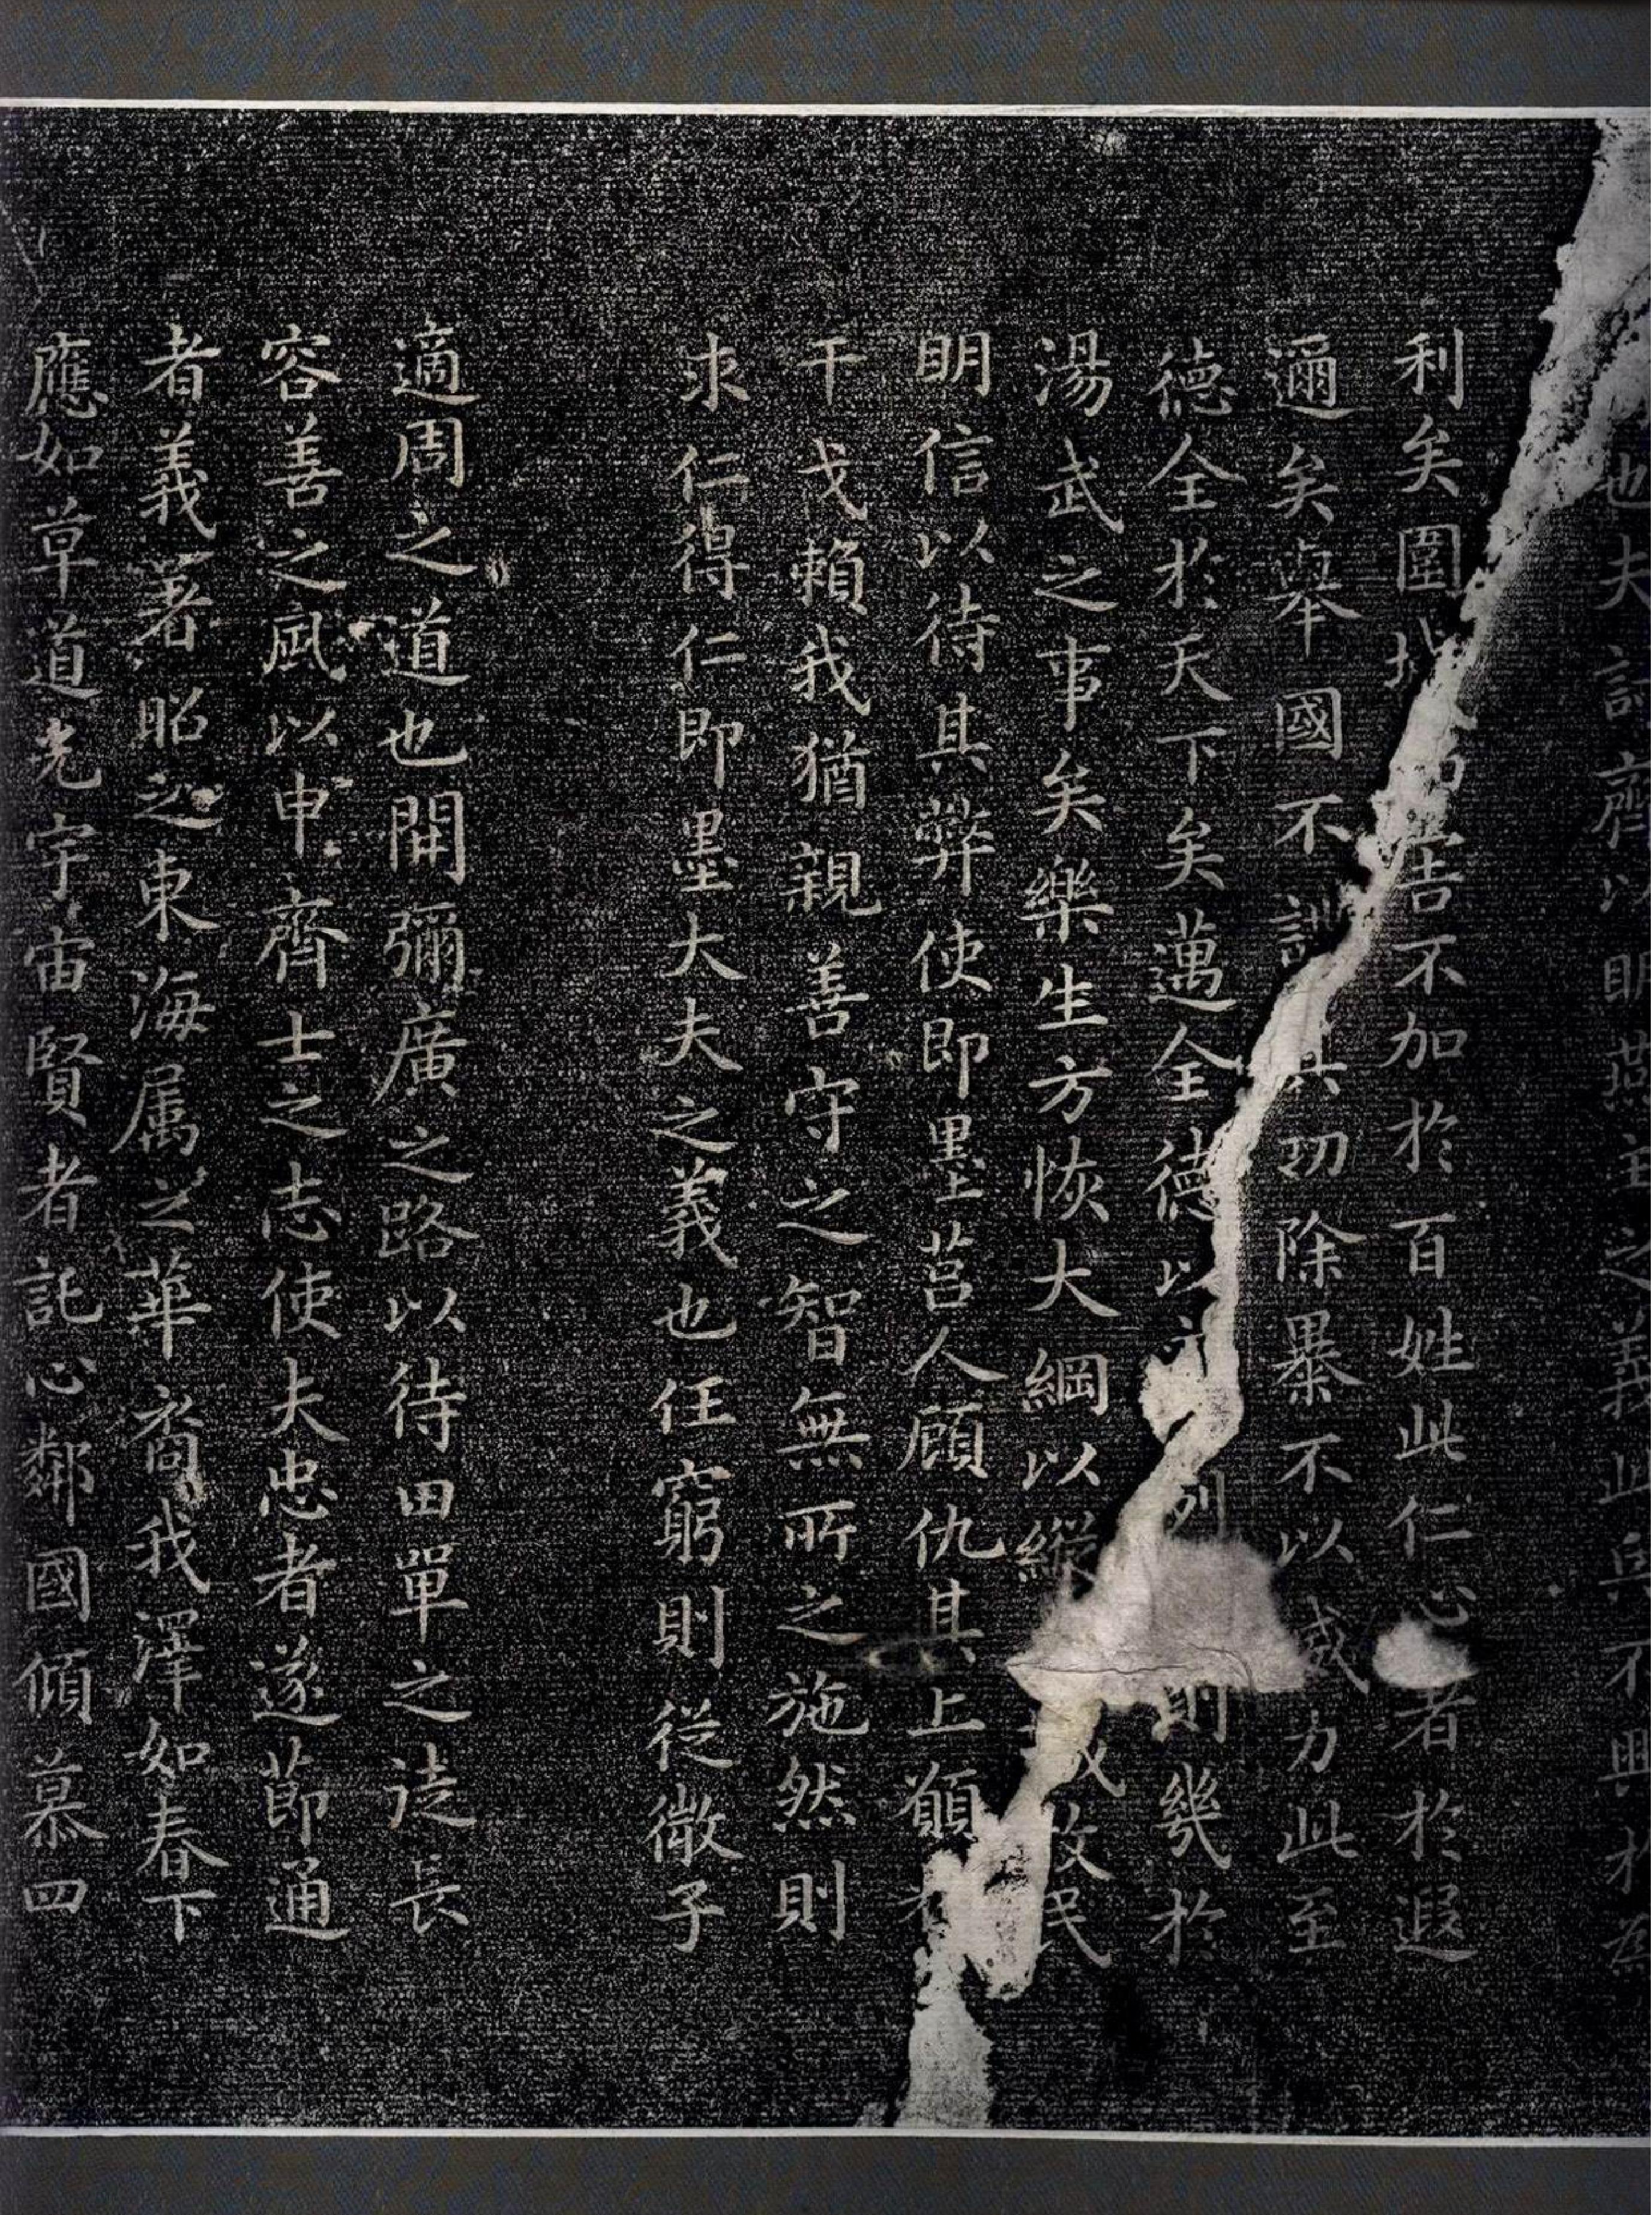 也夫討齊以明燕主之義此兵不興於為
利矣圍城害不加於百姓此仁心著於遐
邇矣舉國不謀其功除暴不以威力此至
德全於天下矣邁全德以列則幾於
湯武之事矣樂生方恢大綱以縱城收民
明信以待其弊使即墨莒人顧仇其上願
干戈賴我猶親善守之智無所之施然則
求仁得仁即墨大夫之義也任窮則從微子
適周之道也開彌廣之路以待田單之徒長
容善之風以申齊士之志使夫忠者遂節通
者義著昭之東海属之華裔我澤如春下
應如草道光宇宙賢者託心鄰國傾慕四